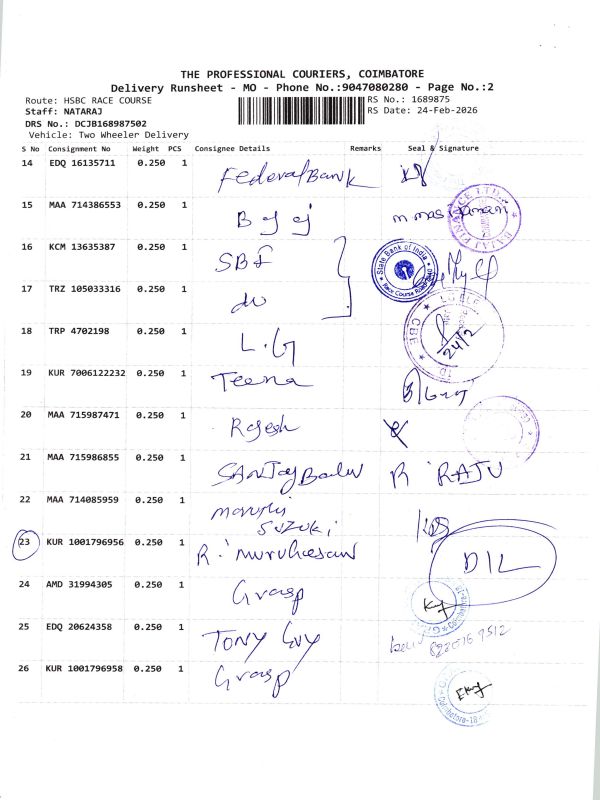 THE PROFESSIONAL COURIERS, COIMBATORE
Delivery Runsheet - MO - Phone No.:9047080280 - Page No.:2
Route: HSBC RACE COURSE RS No.: 1689875
Staff: NATARAJ RS Date: 24-Feb-2026
DRS No.: DCJB168987502
Vehicle: Two Wheeler Delivery
S No Consignment No Weight PCS Consignee Details Remarks Seal & Signature
14 EDQ 16135711 0.250 1 Federal Bank
15 MAA 714386553 0.250 1
BAJAJ FINANCE LTD.
16 KCM 13635387 0.250 1 SBI
State Bank of India
17 TRZ 105033316 0.250 1 do
18 TRP 4702198 0.250 1 L.G
CBE
24/2
19 KUR 7006122232 0.250 1 Teena
20 MAA 715987471 0.250 1 Rajesh
21 MAA 715986855 0.250 1 SANJay R RAJU
22 MAA 714085959 0.250 1 maruti
SUZUKI
23 KUR 1001796956 0.250 1 R. murukesan DIL
24 AMD 31994305 0.250 1 Grasp
25 EDQ 20624358 0.250 1 TONY GUY
26 KUR 1001796958 0.250 1 Grasp
Coimbatore-18